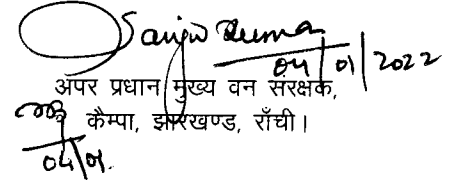 Sanjiv Kumar
04/01/2022
अपर प्रधान मुख्य वन संरक्षक,
कैम्पा, झारखण्ड, राँची।
04/01.